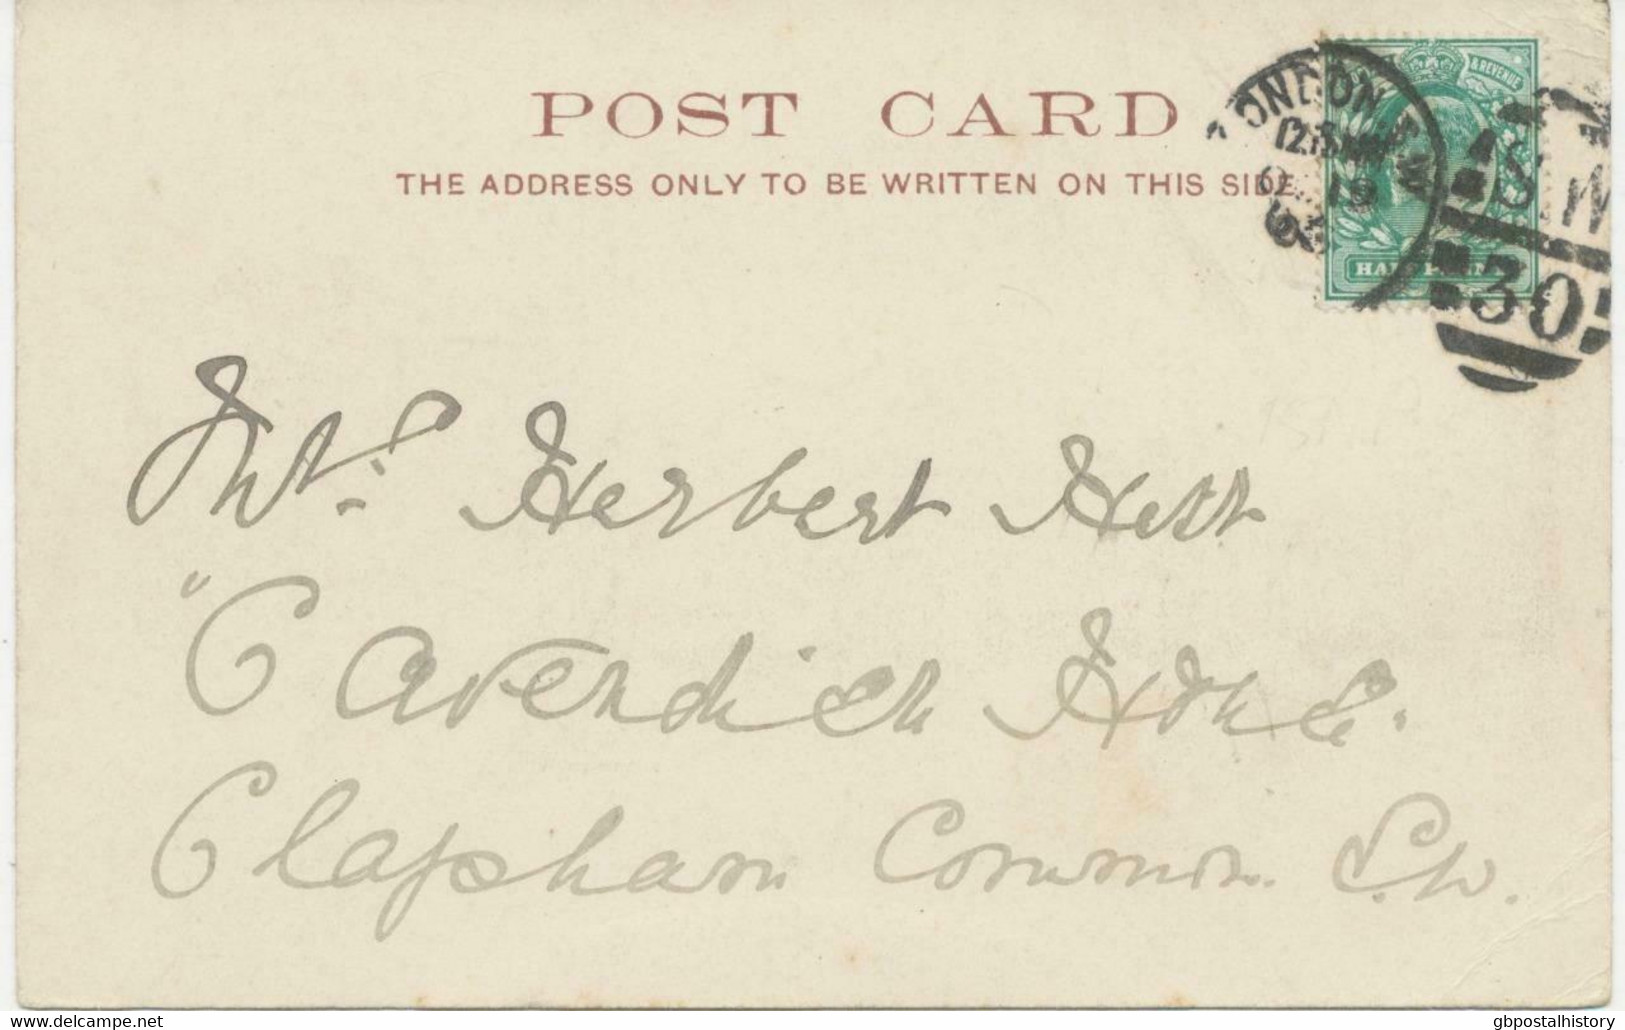 POST CARD
THE ADDRESS ONLY TO BE WRITTEN ON THIS SIDE
LONDON S.W
12.15
19
& REVENUE
HALFPENNY
S.W
30
Mrs. Herbert
"Cavendish House.
Clapham Common. S.W.
www.delcampe.net
gbpostalhistory